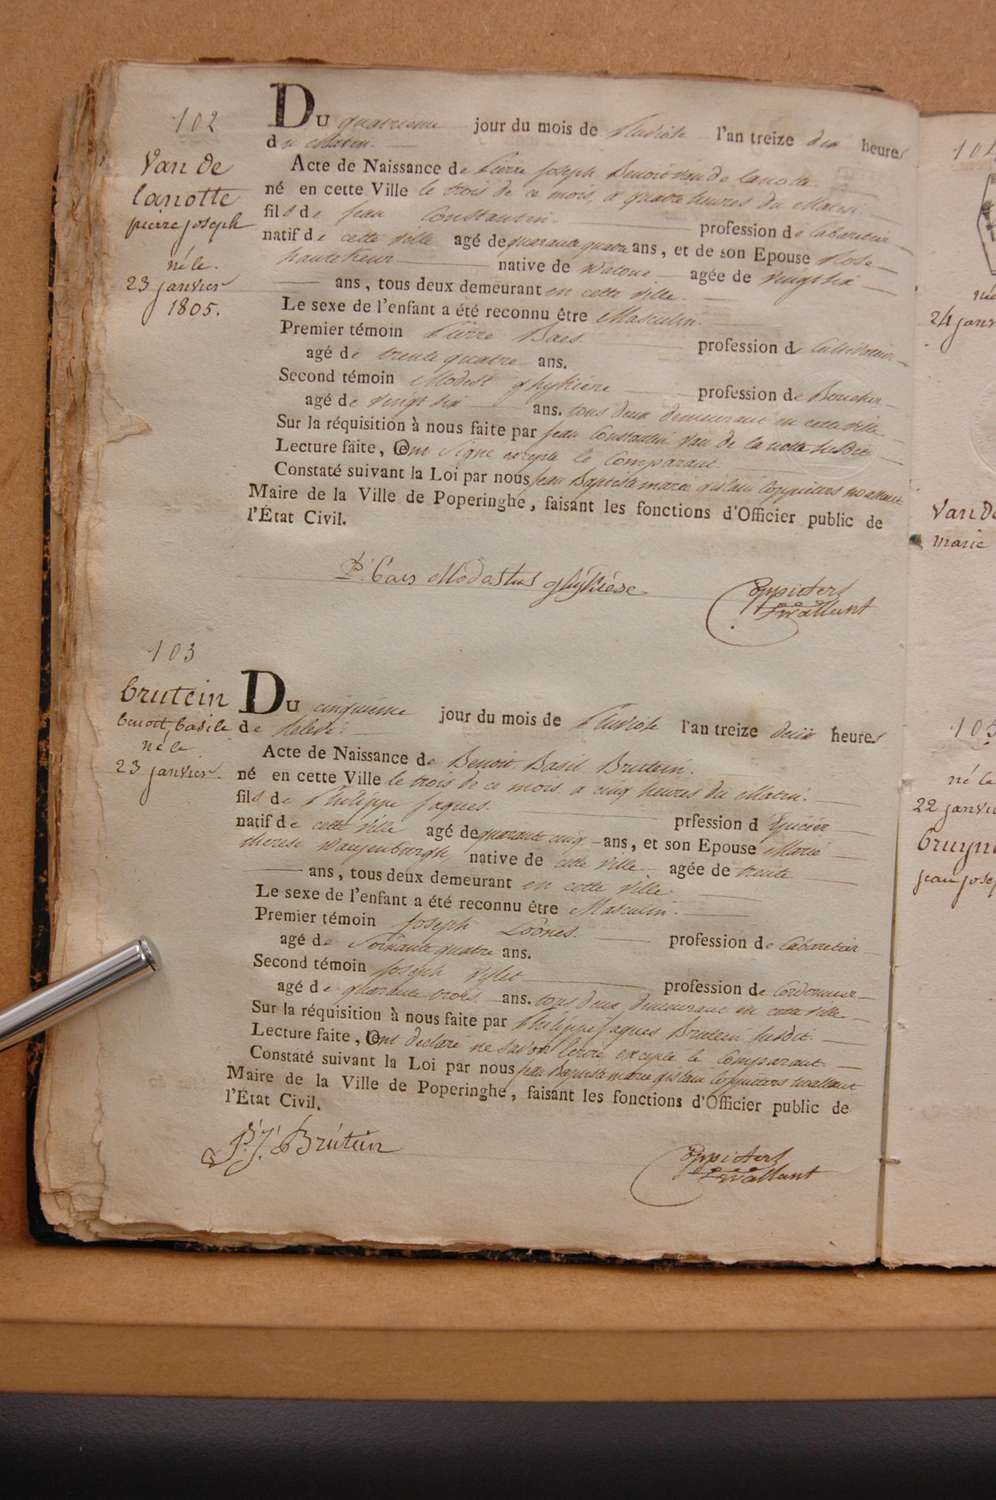 102
Van de
lanotte
pierre joseph
né le
23 janvier
1805.
Du quatrieme jour du mois de Pluviôse l'an treize dix heures
du matin.
Acte de Naissance de Pierre Joseph Benoit Van de lanotte
né en cette Ville le trois de ce mois, a quatre heures du Matin
fils de Jean Constantin profession de Cabaretier
natif de cette ville agé de quarante quatre ans, et de son Epouse Rose
native de Watoue agée de vingt six
ans, tous deux demeurant en cette ville.
Le sexe de l'enfant a été reconnu être Masculin.
Premier témoin Pierre Baes profession de Cultivateur
agé de trente quatre ans.
Second témoin Modest ghykiere profession de Boucher
agé de vingt six ans. tous deux demeurant en cette ville
Sur la réquisition à nous faite par Jean Constantin Van de la notte susdit
Lecture faite, Ont Signé excepté le Comparant
Constaté suivant la Loi par nous jean Baptiste marie gislain Coppieters wallant
Maire de la Ville de Poperinghe, faisant les fonctions d'Officier public de
l'État Civil.
P. Baes Modestus ghÿkiere
Coppieters
Wallant
103
brutein
benoit basile
né le
23 janvier.
Du cinquieme jour du mois de Pluviôse l'an treize heures
de relevé.
Acte de Naissance de Benoit Basil Brutein.
né en cette Ville le trois de ce mois a cinq heures du Matin.
fils de Philippe Jaques prfession d Epicier
natif de cette ville agé de quarante cinq ans, et son Epouse Marie
therese native de cette ville agée de trente
ans, tous deux demeurant en cette ville.
Le sexe de l'enfant a été reconnu être Masculin.
Premier témoin Joseph Loönes profession de Cabaretier
agé de Soixante quatre ans.
Second témoin Joseph profession de Cordonnier
agé de quarante trois ans. tous deux demeurant en cette ville
Sur la réquisition à nous faite par Philippe Jaques Brutein susdit.
Lecture faite, Ont declaré ne savoir ecrire excepté le Comparant
Constaté suivant la Loi par nous jean Baptiste marie gislain Coppieters wallant
Maire de la Ville de Poperinghe, faisant les fonctions d'Officier public de
l'État Civil.
P. J. Brútein
Coppieters
Wallant
24 janv
Van de
marie
105
né le
22 janvie
bruyn
jean jose